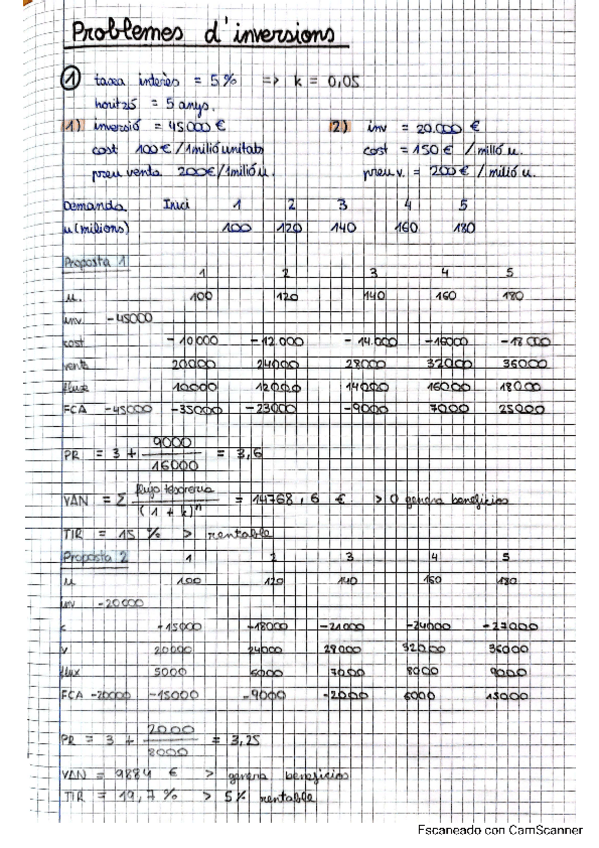 Problemes d'inversions
1 taxa interès = 5% => k = 0,05
horitzó = 5 anys.
1) inversió = 45000 € 2) inv = 20.000 €
cost 100€/1milió unitats cost = 150€ / milió u.
preu venda 200€/1milió u. preu v. = 200€ / milió u.
Demanda Inici 1 2 3 4 5
u (milions) 100 120 140 160 180
Proposta 1
1 2 3 4 5
u. 100 120 140 160 180
inv. -45000
cost -10000 -12.000 -14.000 -16000 -18000
venta 20000 24000 28000 32000 36000
flux 10000 12000 14000 16000 18000
FCA -45000 -35000 -23000 -9000 7000 25000
PR = 3 + 9000/16000 = 3,6
VAN = Σ flujo tesoreria/(1 + k)^n = 14768,6 € > 0 genera beneficios
TIR = 15 % > rentable
Proposta 2 1 2 3 4 5
u 100 120 140 160 180
inv -20000
c -15000 -18000 -21000 -24000 -27000
v 20000 24000 28000 32000 36000
flux 5000 6000 7000 8000 9000
FCA -20000 -15000 -9000 -2000 6000 15000
PR = 3 + 2000/8000 = 3,25
VAN = 9884 € > genera beneficios
TIR = 19,7 % > 5% rentable
Escaneado con CamScanner